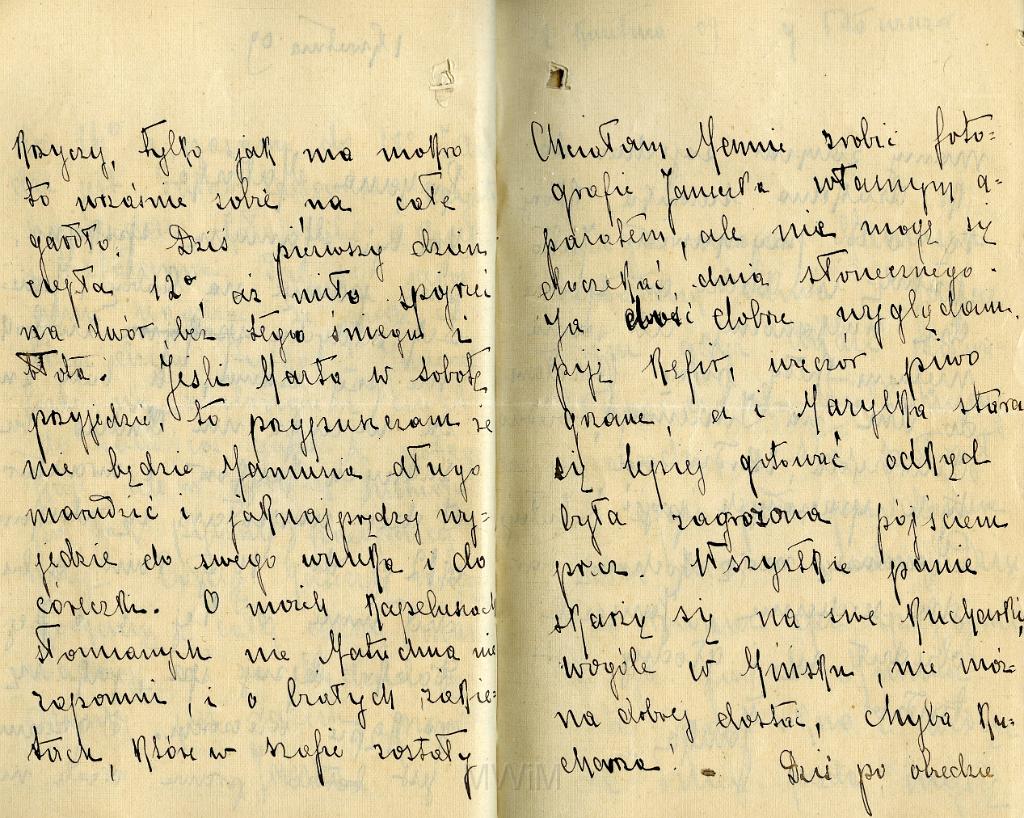 krzyczy, tylko jak ma mokro
to wrzaśnie sobie na całe
gardło. Dziś pierwszy dzień
ciepła 12°, aż miło spojrzeć
na dwór, bez tego śniegu i
błota. Jeśli Marta w sobotę
przyjedzie, to przypuszczam że
nie będzie Mamunia długo
marudzić i jaknajprędzej wy=
jedzie do swego wnuka i do
córeczki. O moich kapeluszach
słomianych nie Matuchna nie
zapomni, i o białych żakie=
tach, które w szafie zostały
Chciałam Memnie zrobić foto=
grafie Janeczka własnym a=
paratem, ale nie mogę się
doczekać dnia słonecznego.
Ja dość dobrze wyglądam,
piję kefir, wieczór piwo
grzane, a i Marylka stara
się lepiej gotować odkąd
była zagrożona pójściem
precz. Wszystkie panie
skarżą się na swe kucharki,
wogóle w Mińsku, nie moż=
na dobrej dostać, chyba ku=
charza! - Dziś po obiedzie
MWiM